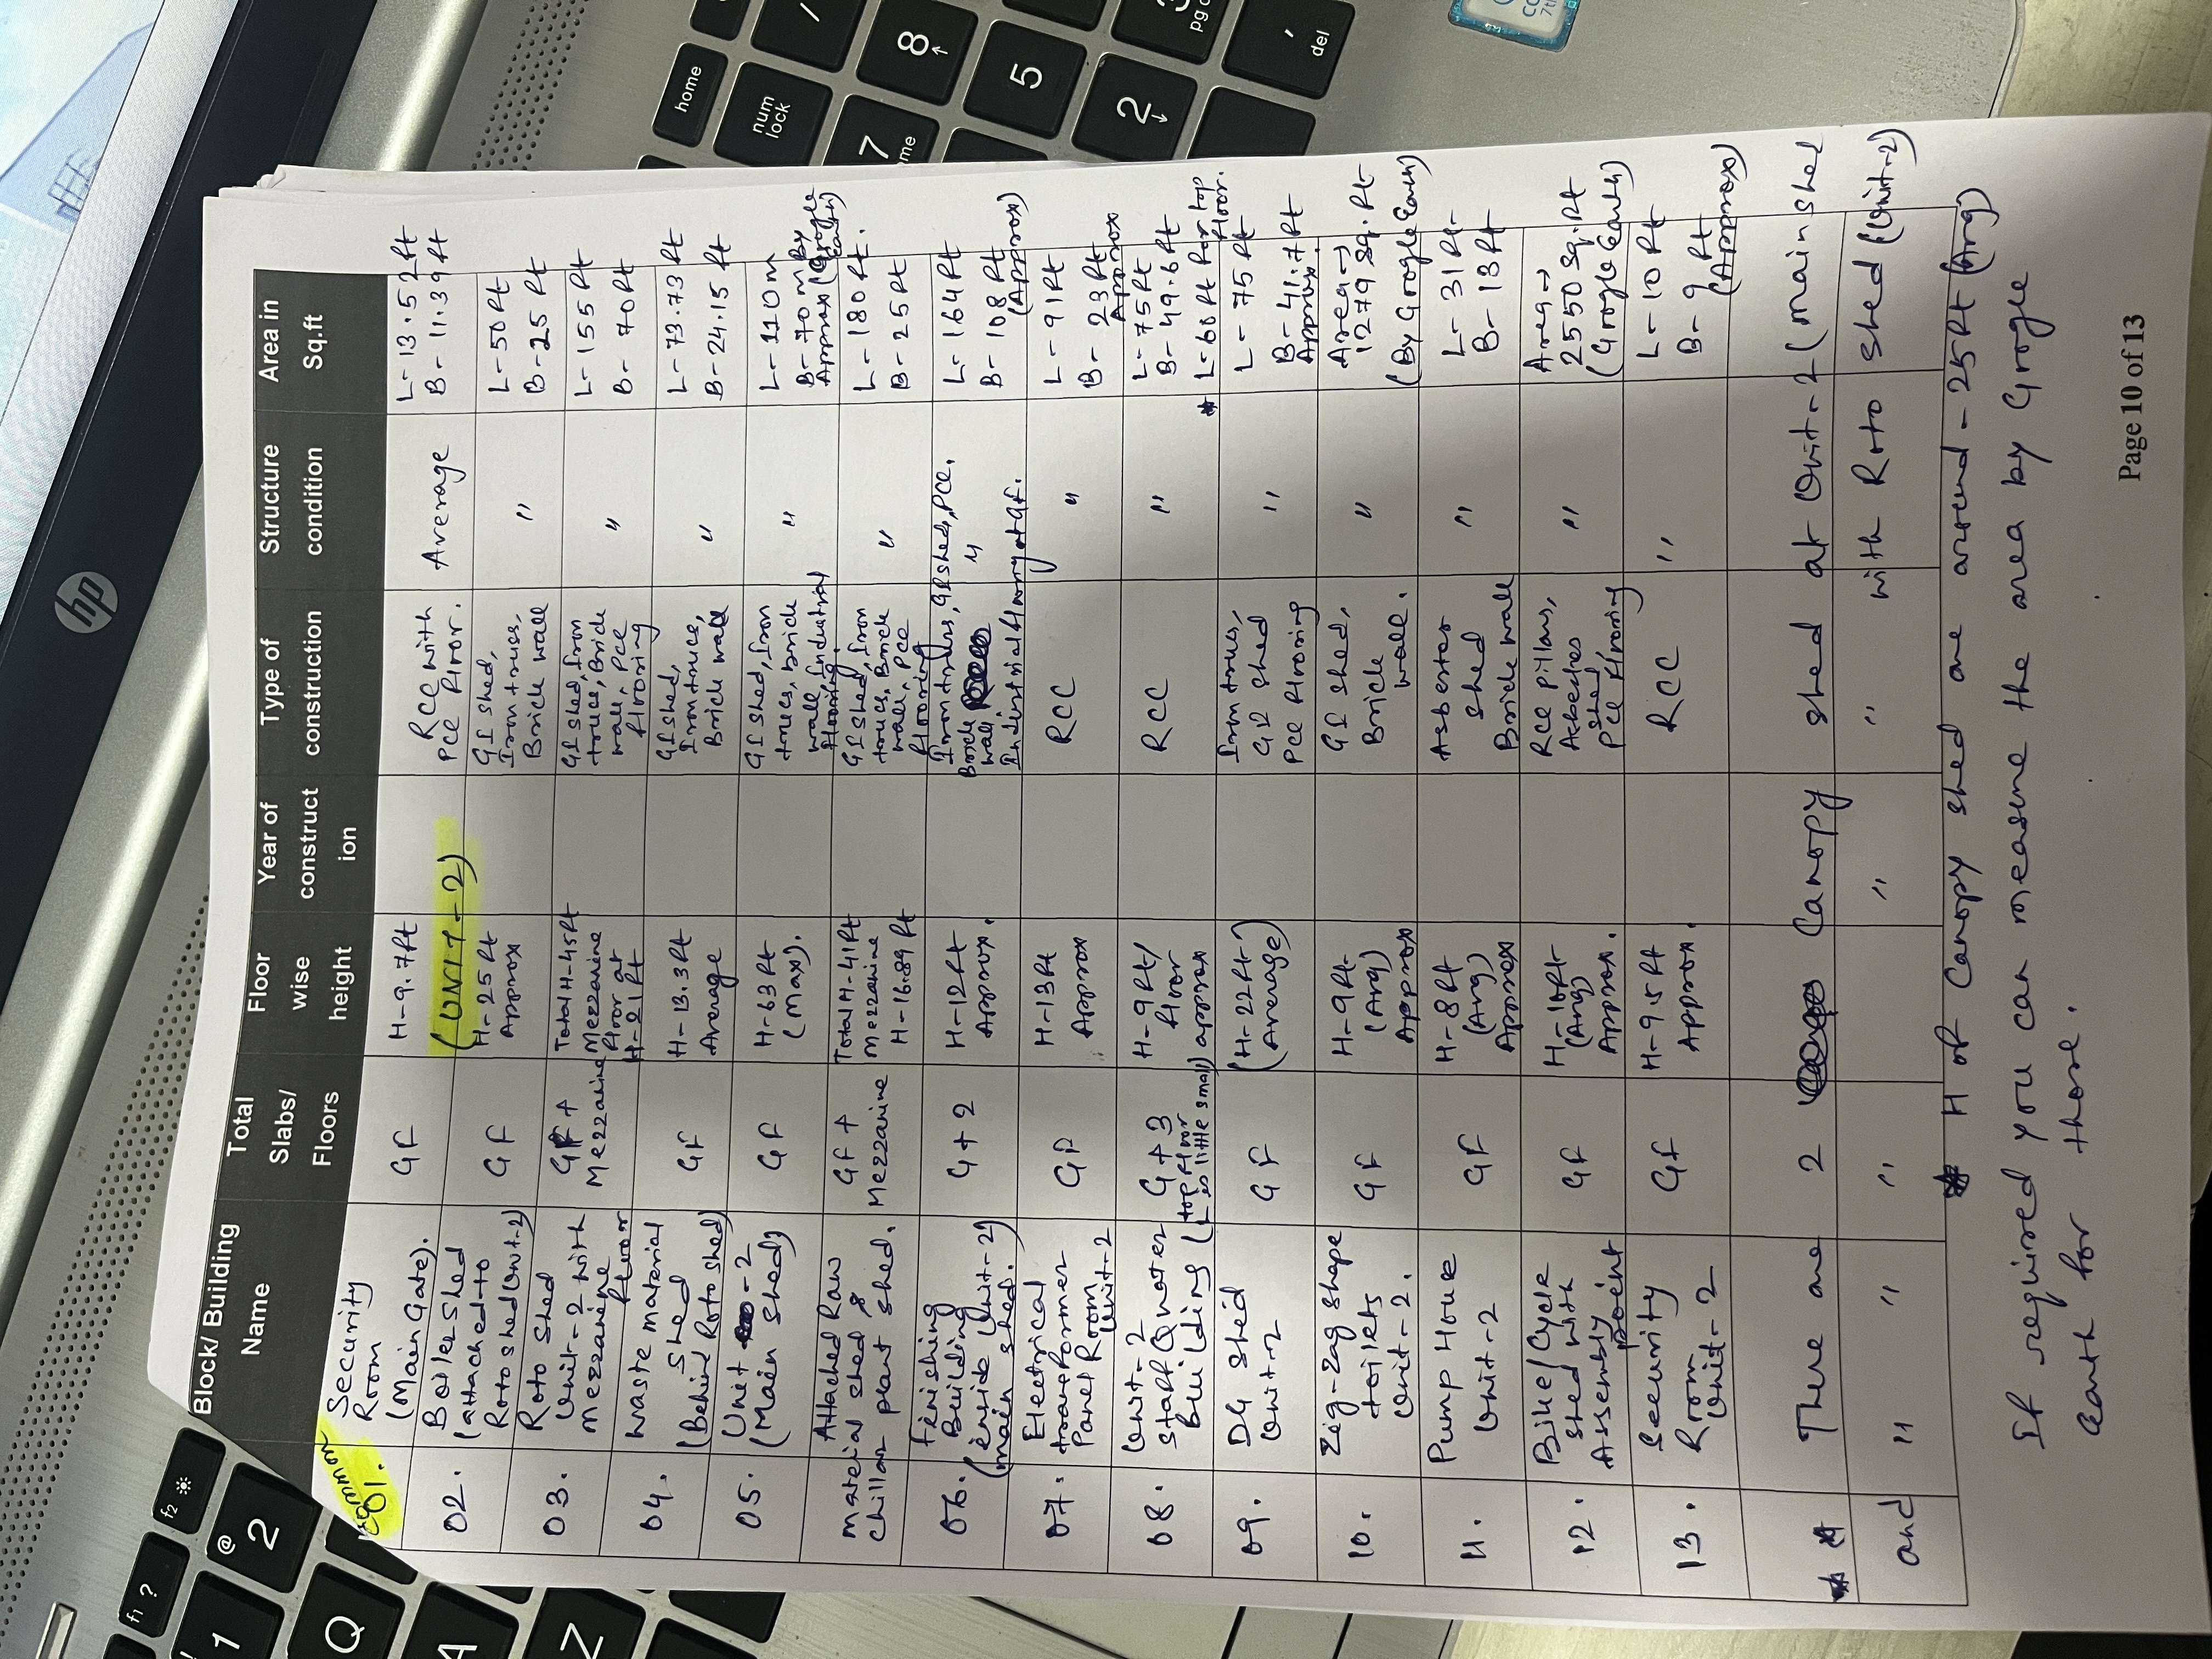 Block/ Building Name | Total Slabs/ Floors | Floor wise height | Year of construct ion | Type of construction | Structure condition | Area in Sq.ft
Common
01. | Security Room (Main Gate). | GF | H-9.7ft | | RCC with PCC floor. | Average | L-13.52ft B-11.39ft
(UNIT-2)
02. | Boiler Shed (attached to Roto shed (Unit-2) | GF | H-25ft Approx | | GI shed, Iron truses, Brick wall | " | L-50ft B-25ft
03. | Roto Shed Unit-2 with mezzanine floor | GF + Mezzanine | Total H-45ft Mezzanine floor at H-21ft | | GI shed, Iron truces, Brick wall, PCC flooring | " | L-155ft B-70ft
04. | Waste material Shed (Behind Roto shed) | GF | H-13.3ft Average | | GI shed, Iron truces, Brick wall | " | L-73.73ft B-24.15ft
05. | Unit-2 (Main Shed) | GF | H-63ft (Max). | | GI shed, Iron truces, brick wall, Industrial flooring. | " | L-110m B-70m By Approx (Google Earth)
Attached Raw material shed & chillar plant shed. | GF + Mezzanine | Total H-41ft mezzanine H-16.89ft | | GI shed, Iron truces, Brick wall, PCC flooring | " | L-180ft. B-25ft
06. | Finishing Building (inside Unit-2) (main shed.) | G+2 | H-12ft Approx. | | Iron truss, GI shed, PCC, Brick wall Industrial flooring at GF. | " | L-164ft B-108ft (Approx)
07. | Electrical transformer Panel Room Unit-2 | GF | H-13ft Approx | | RCC | " | L-91ft B-23ft Approx
08. | Unit-2 Staff Quater Building | G+3 (top floor is little small) | H-9ft/ floor approx | | RCC | " | L-75ft B-49.6ft * L-60ft for top floor.
09. | DG Shed Unit-2 | GF | (H-22ft) (Average) | | Iron truses, GI shed PCC flooring | " | L-75ft B-41.7ft Approx
10. | Zig-zag shape toilets Unit-2. | GF | H-9ft (Avg) Approx | | GI shed, Brick wall. | " | Area→ 1279 sq.ft (By Google Earth)
11. | Pump House Unit-2 | GF | H-8ft (Avg) Approx | | Asbester shed Brick wall | " | L-31ft B-13ft
12. | Bike/Cycle shed with Assembly point | GF | H-10ft (Avg) Approx. | | RCC pillars, Asbestos shed PCC flooring | " | Area→ 2550 sq.ft (Google Earth)
13. | Security Room Unit-2 | GF | H-9.5ft Approx. | | RCC | " | L-10ft B-9ft (Approx)
** There are 2 Canopy shed at Unit-2 (main shed
and " " " " " with Roto shed (Unit-2)
* H of Canopy shed are around - 25ft (Avg)
If required you can measure the area by Google
Earth for those.
Page 10 of 13
hp
home
num lock
7
8
5
2
3
pg
del
me
f1 ?
f2
@ 2
1
Q
A
Z
7th